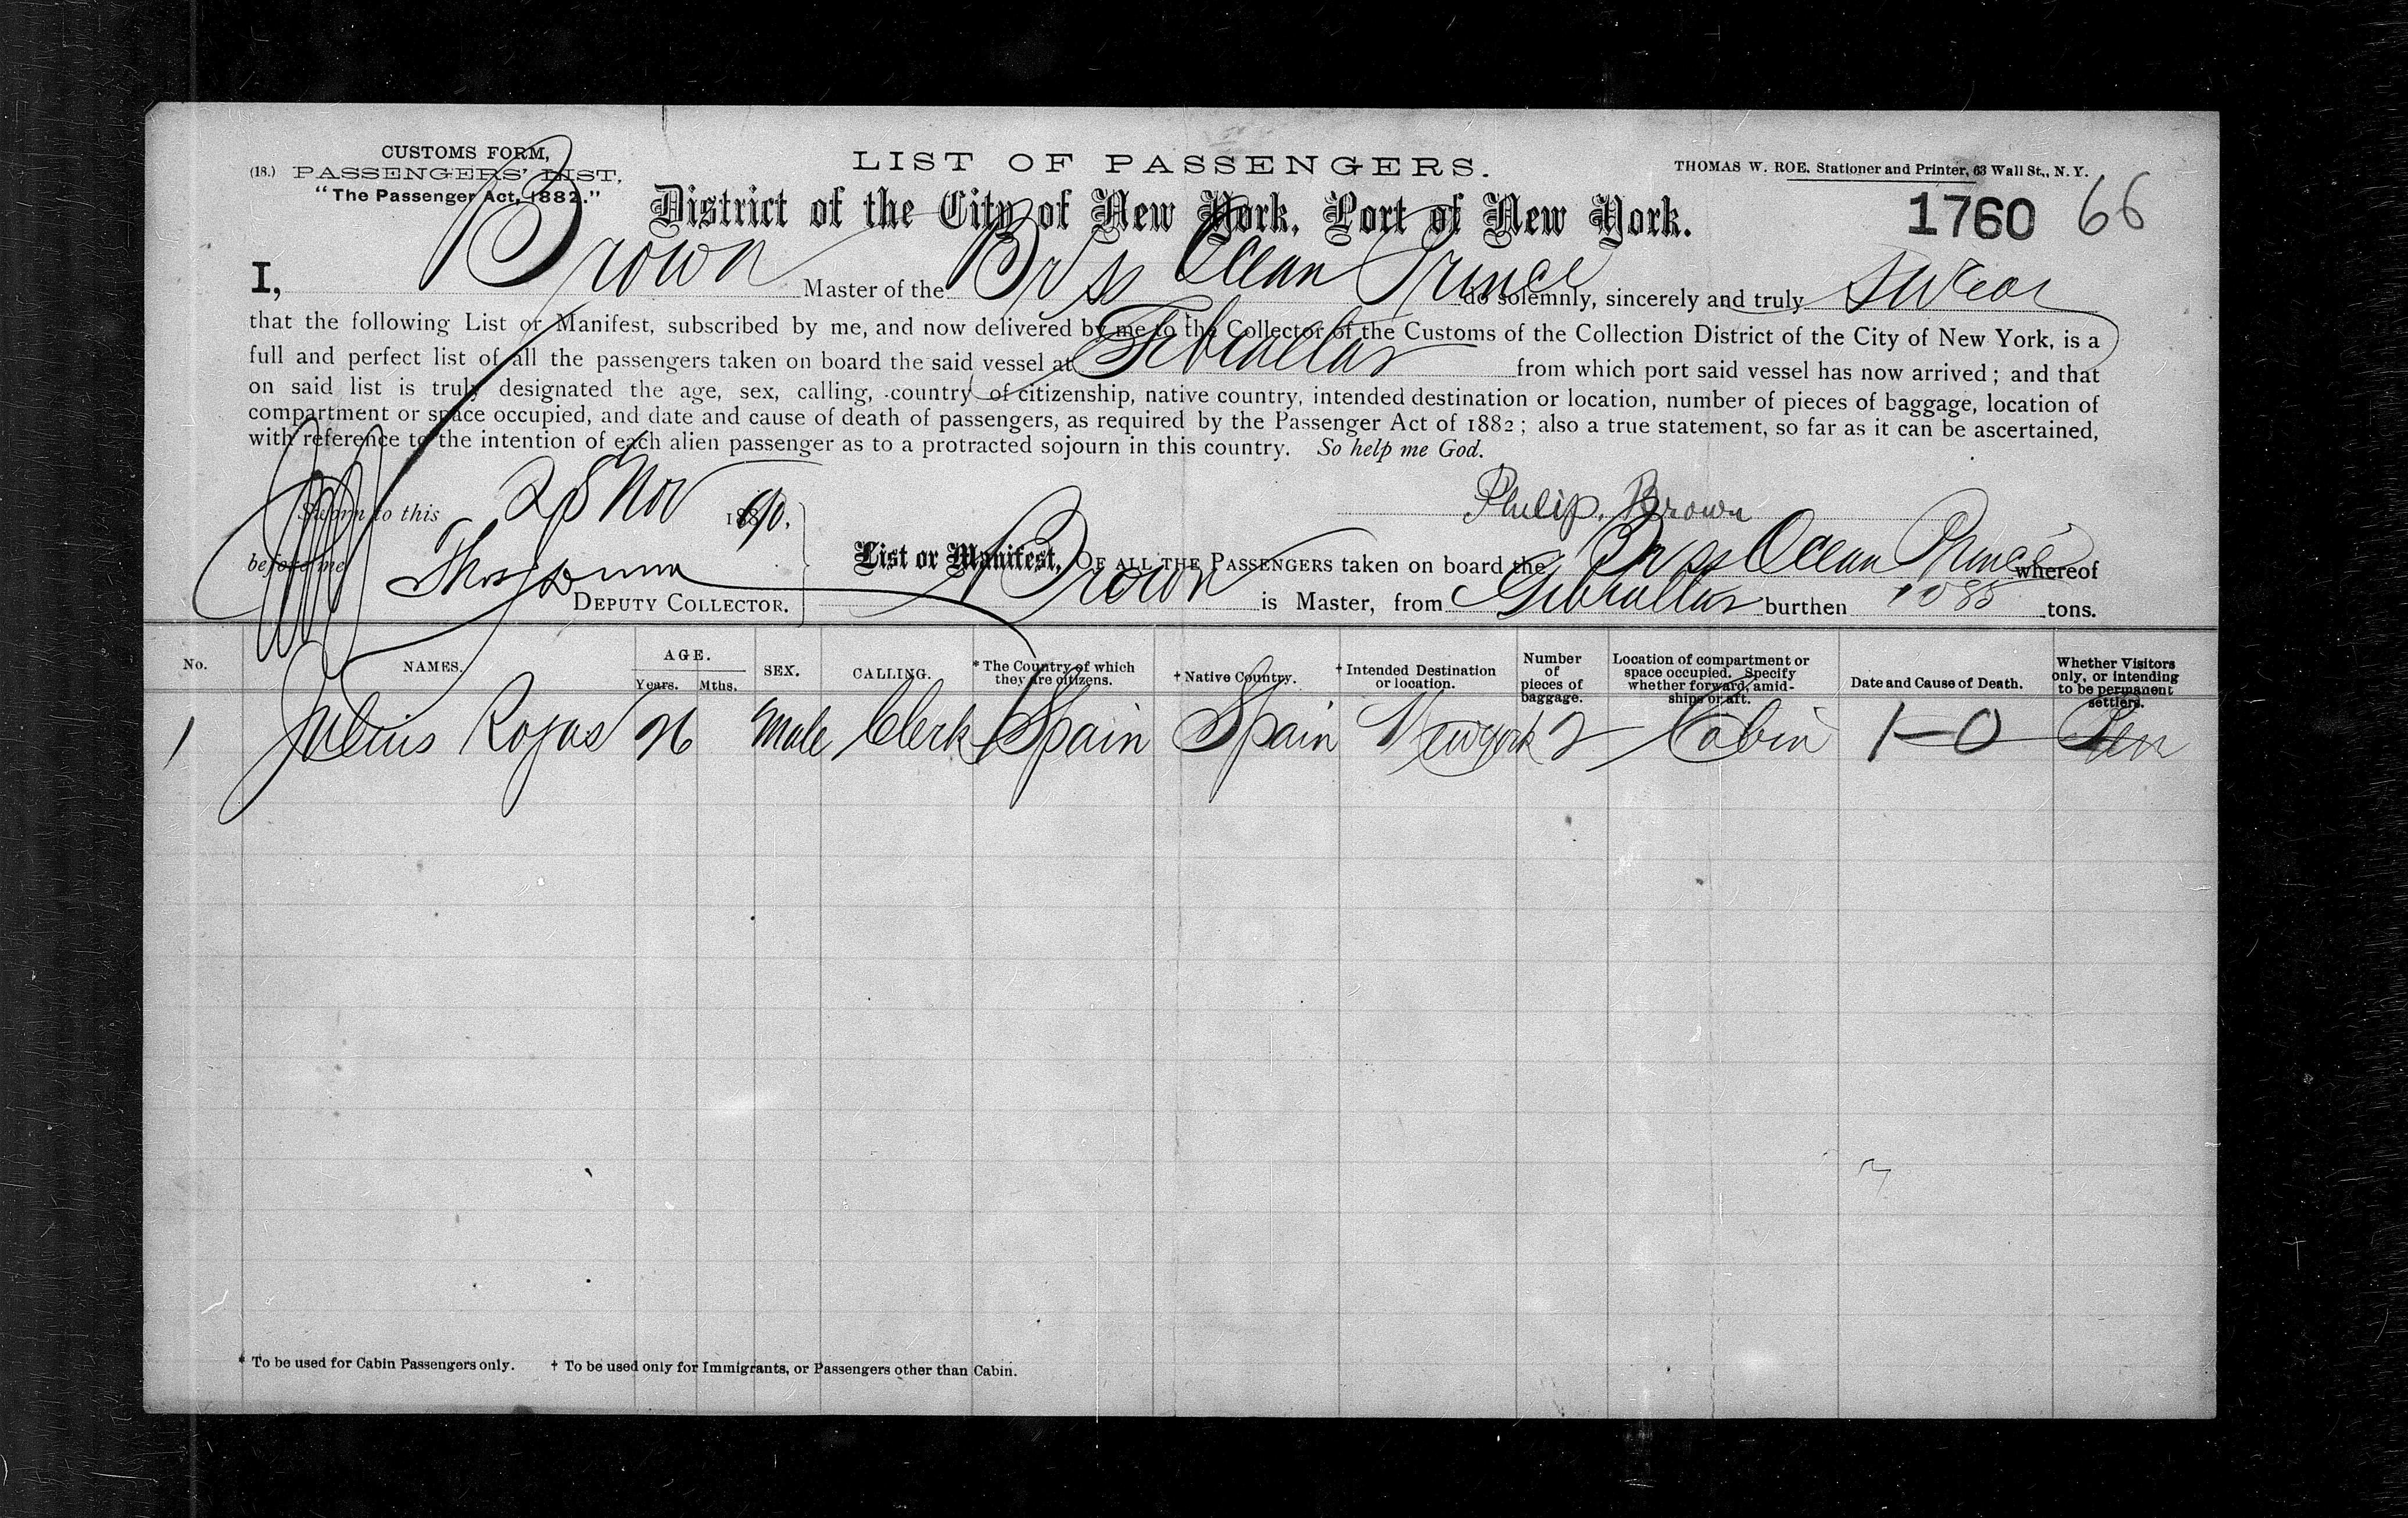 CUSTOMS FORM,
(18.) PASSENGERS' LIST,
"The Passenger Act, 1882."
LIST OF PASSENGERS.
THOMAS W. ROE, Stationer and Printer, 63 Wall St., N. Y.
District of the City of New York, Port of New York.
1760 66
I, Brown Master of the Br ss Ocean Prince do solemnly, sincerely and truly swear
that the following List or Manifest, subscribed by me, and now delivered by me to the Collector of the Customs of the Collection District of the City of New York, is a
full and perfect list of all the passengers taken on board the said vessel at Gibraltar from which port said vessel has now arrived; and that
on said list is truly designated the age, sex, calling, country of citizenship, native country, intended destination or location, number of pieces of baggage, location of
compartment or space occupied, and date and cause of death of passengers, as required by the Passenger Act of 1882; also a true statement, so far as it can be ascertained,
with reference to the intention of each alien passenger as to a protracted sojourn in this country. So help me God.
Sworn to this 28 Nov 1890.
Philip. Brown
before me Thos
DEPUTY COLLECTOR.
List or Manifest, OF ALL THE PASSENGERS taken on board the Br ss Ocean Prince whereof
Brown is Master, from Gibraltar burthen 1088 tons.
No. NAMES. AGE. Years. Mths. SEX. CALLING. * The Country of which they are citizens. † Native Country. † Intended Destination or location. Number of pieces of baggage. Location of compartment or space occupied. Specify whether forward, amidships or aft. Date and Cause of Death. Whether Visitors only, or intending to be permanent settlers.
1 Julius Rojas 26 Male Clerk Spain Spain New york 2 Cabin 1-0 Per
* To be used for Cabin Passengers only. † To be used only for Immigrants, or Passengers other than Cabin.